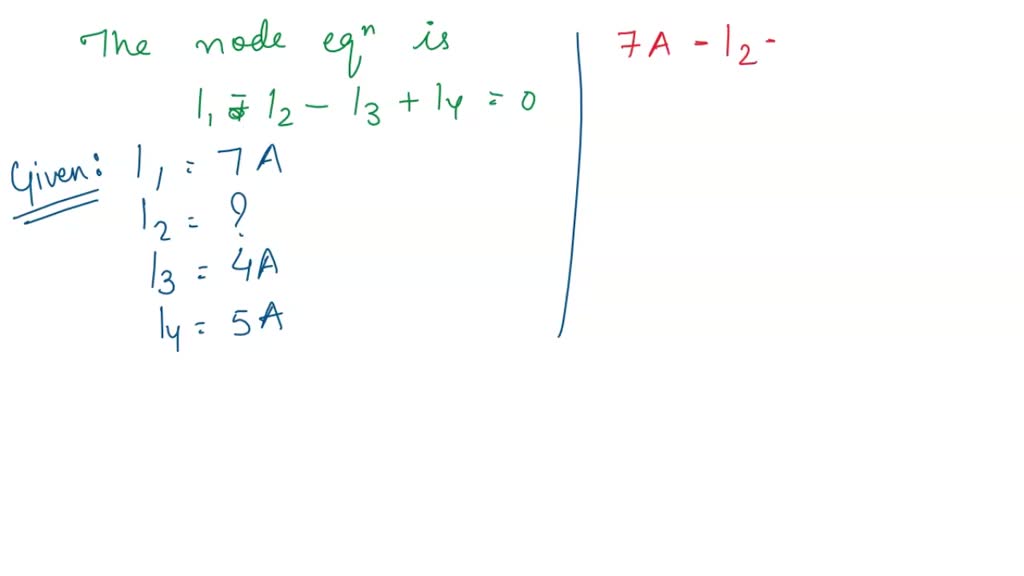 The node eqⁿ is
I₁ - I₂ - I₃ + I₄ = 0
Given: I₁ = 7A
I₂ = ?
I₃ = 4A
I₄ = 5A
7A - I₂ -